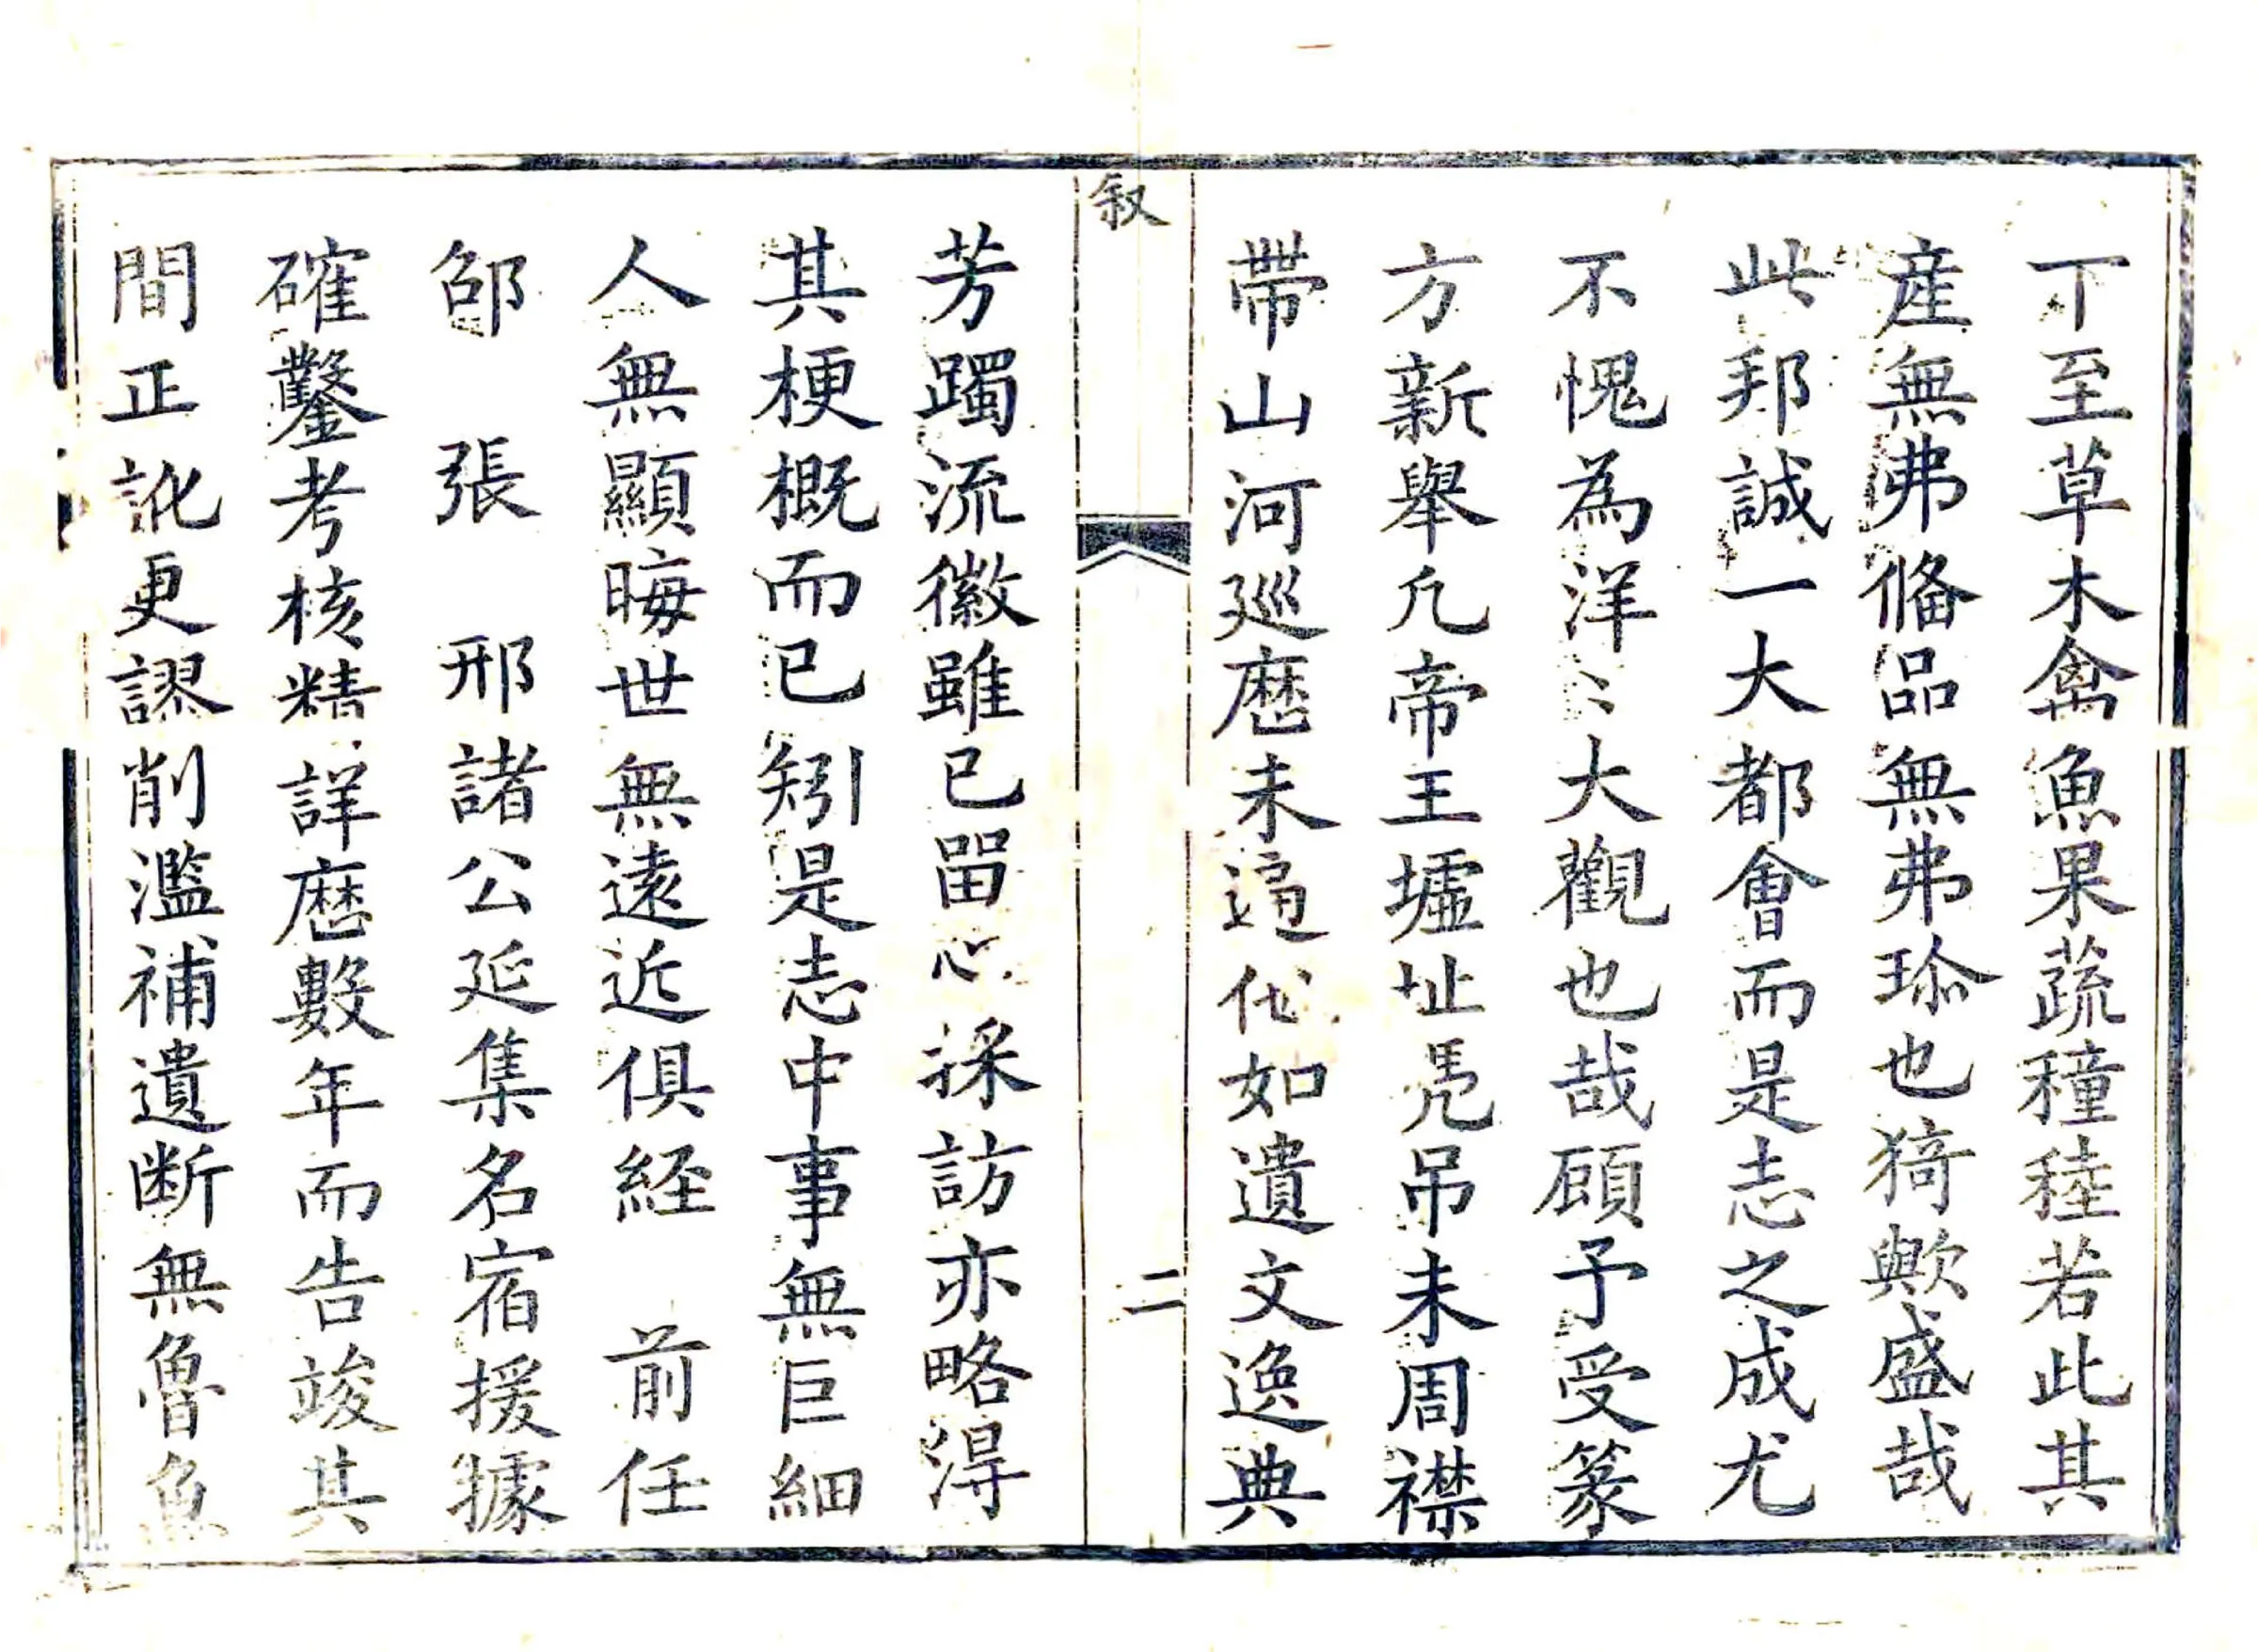 丁至草木禽魚果蔬穜稑若此其
産無弗俻品無弗珍也猗歟盛哉
此邦誠一大都會而是志之成尤
不愧為洋〻大觀也哉顧予受篆
方新舉凢帝王墟址凴吊未周襟
帶山河廵歷未遍他如遺文逸典
叙
二
芳躅流徽雖已留心採訪亦略得
其梗概而已矧是志中事無巨細
人無顯晦世無遠近俱経 前任
邰 張 邢諸公延集名宿援據
確鑿考核精詳歷數年而告竣其
間正訛更謬削濫補遺断無魯魚